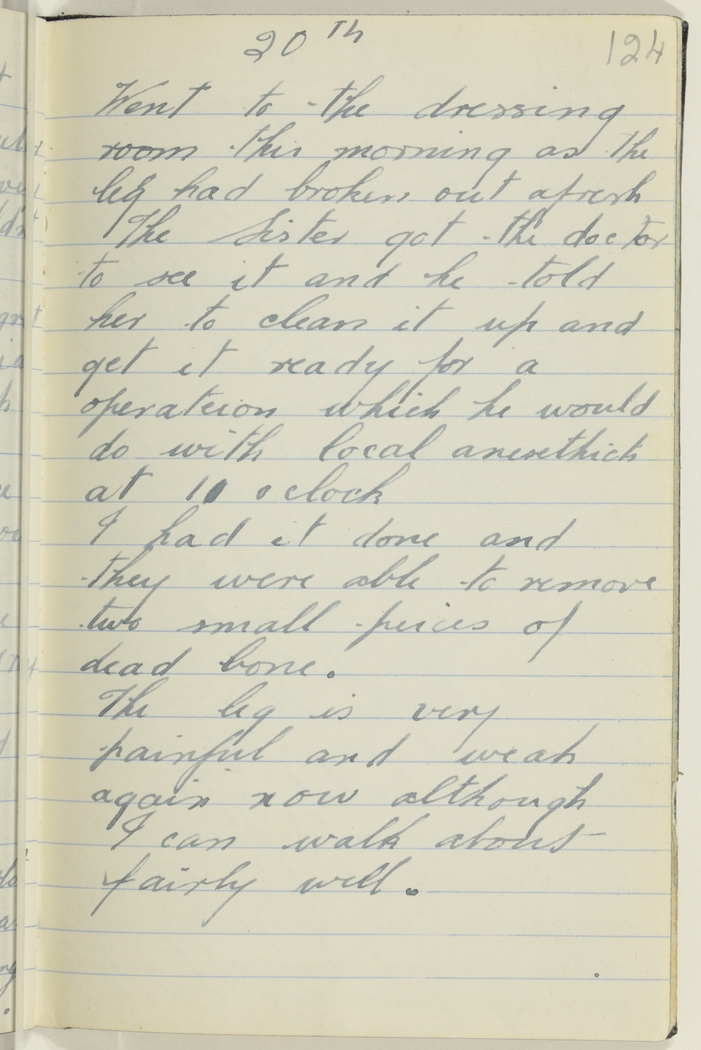 20th
124
Went to the dressing
room this morning as the
leg had broken out afresh
The Sister got the doctor
to see it and he told
her to clean it up and
get it ready for a
operateion which he would
do with local
at 10 oclock
I had it done and
they were able to remove
two small peices of
dead bone.
The leg is very
painful and weak
again now although
I can walk about
fairly well.